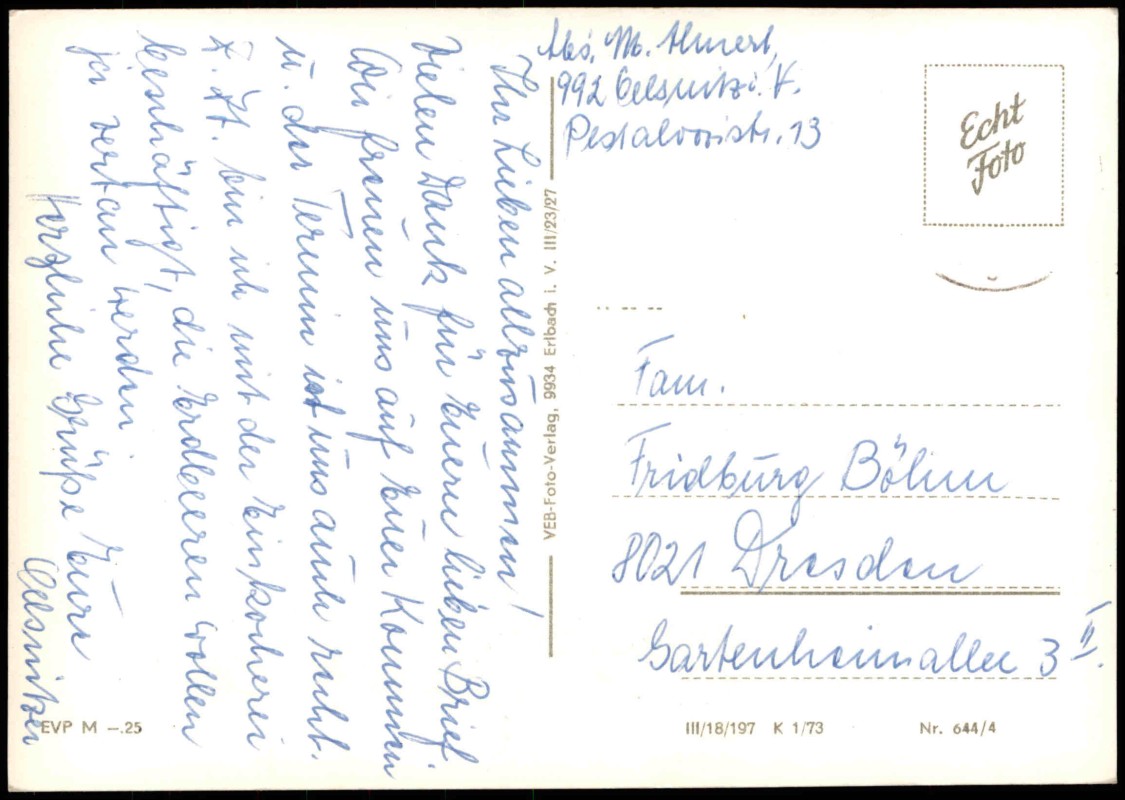 Abs. M. Ahnert,
992 Oelsnitz i. V.
Pestalozzistr. 13
Ihr Lieben allzusammen!
Vielen Dank für Euern lieben Brief.
Wir freuen uns auf Euer Kommen
u. der Termin ist uns auch recht.
Z. Zt. bin ich mit der Einkocherei
beschäftigt, die Erdbeeren wollen
ja vertan werden
Herzliche Grüße Eure
Oelsnitzer
Echt
Foto
Fam.
Fridburg Böhm
8021 Dresden
Gartenheimallee 3 II.
VEB-Foto-Verlag, 9934 Erlbach i. V. III/23/27
EVP M –.25
III/18/197 K 1/73
Nr. 644/4